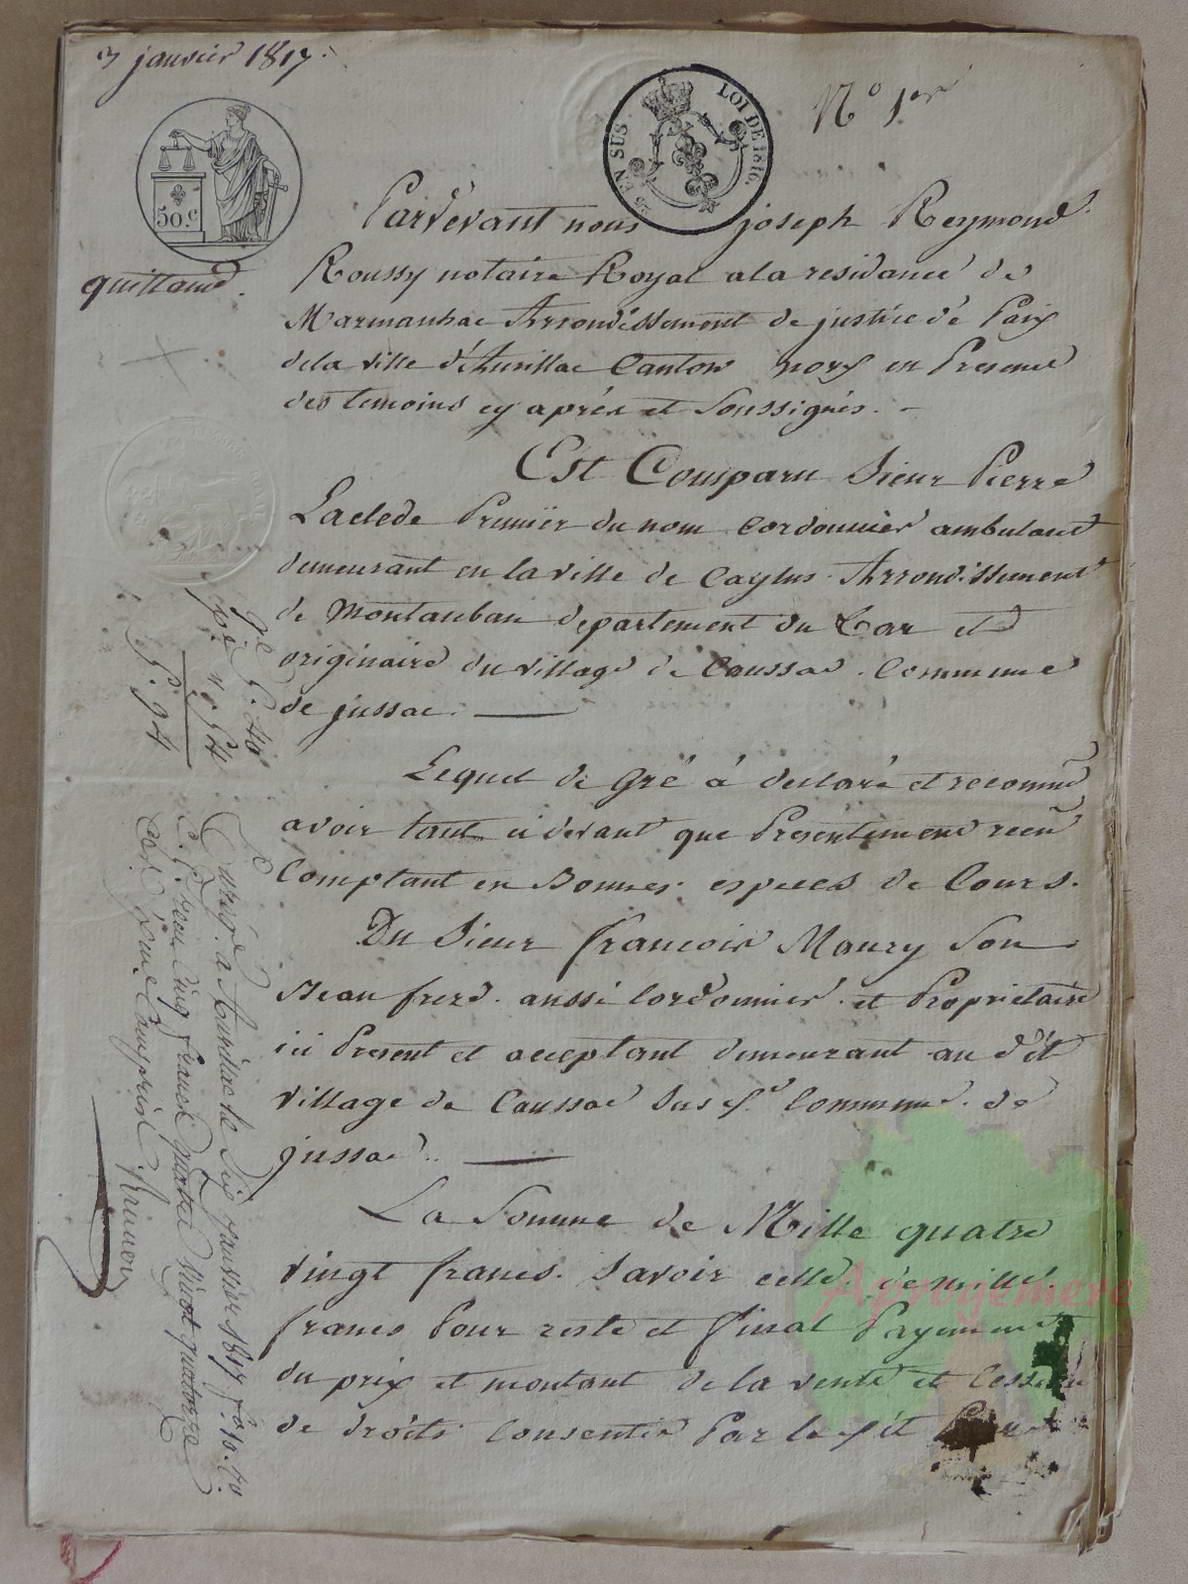 3 janvier 1817.
N° 1er
50.c
EN SUS.
LOI DE 1816.
quittance.
Pardevant nous joseph Reymond
Roussy notaire Royal a la residance de
Marmanhac Arrondissement de justice de Paix
de la ville d'Aurillac Canton nord en Presence
des temoins cy après et Soussignés.
Est Comparu Sieur Pierre
Laclede Premier du nom Cordonnier ambulant
demeurant en la ville de Caylus Arrondissement
de Montauban departement du et
originaire du village de Caussac. Commune
de jussac.
Lequel de Gré à declaré et reconnu
avoir tant ci devant que Presentement recu
Comptant en Bonnes especes de Cours.
Du Sieur francois Maury Son
Beau frere. aussi Cordonnier et Proprietaire
ici Present et acceptant demeurant au dit
village de Caussac Susd. Commune de
jussac.
La Somme de Mille quatre
vingt francs. Savoir celle de mille
francs Pour reste et final Payement
du prix et montant de la vente et Cession
de droits Consentie Par le dit
5. 40
54
5. 94
Enregé a Aurillac le Six janvier 1817 fo. 10.
recu Cinq francs quatre vingt quatorze
Compris
Aprogemere